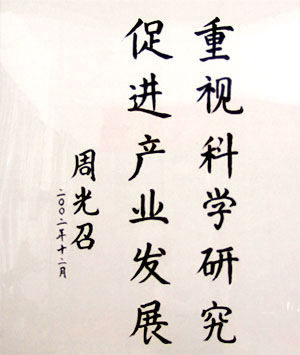 重视科学研究
促进产业发展
周光召
二〇〇二年十二月